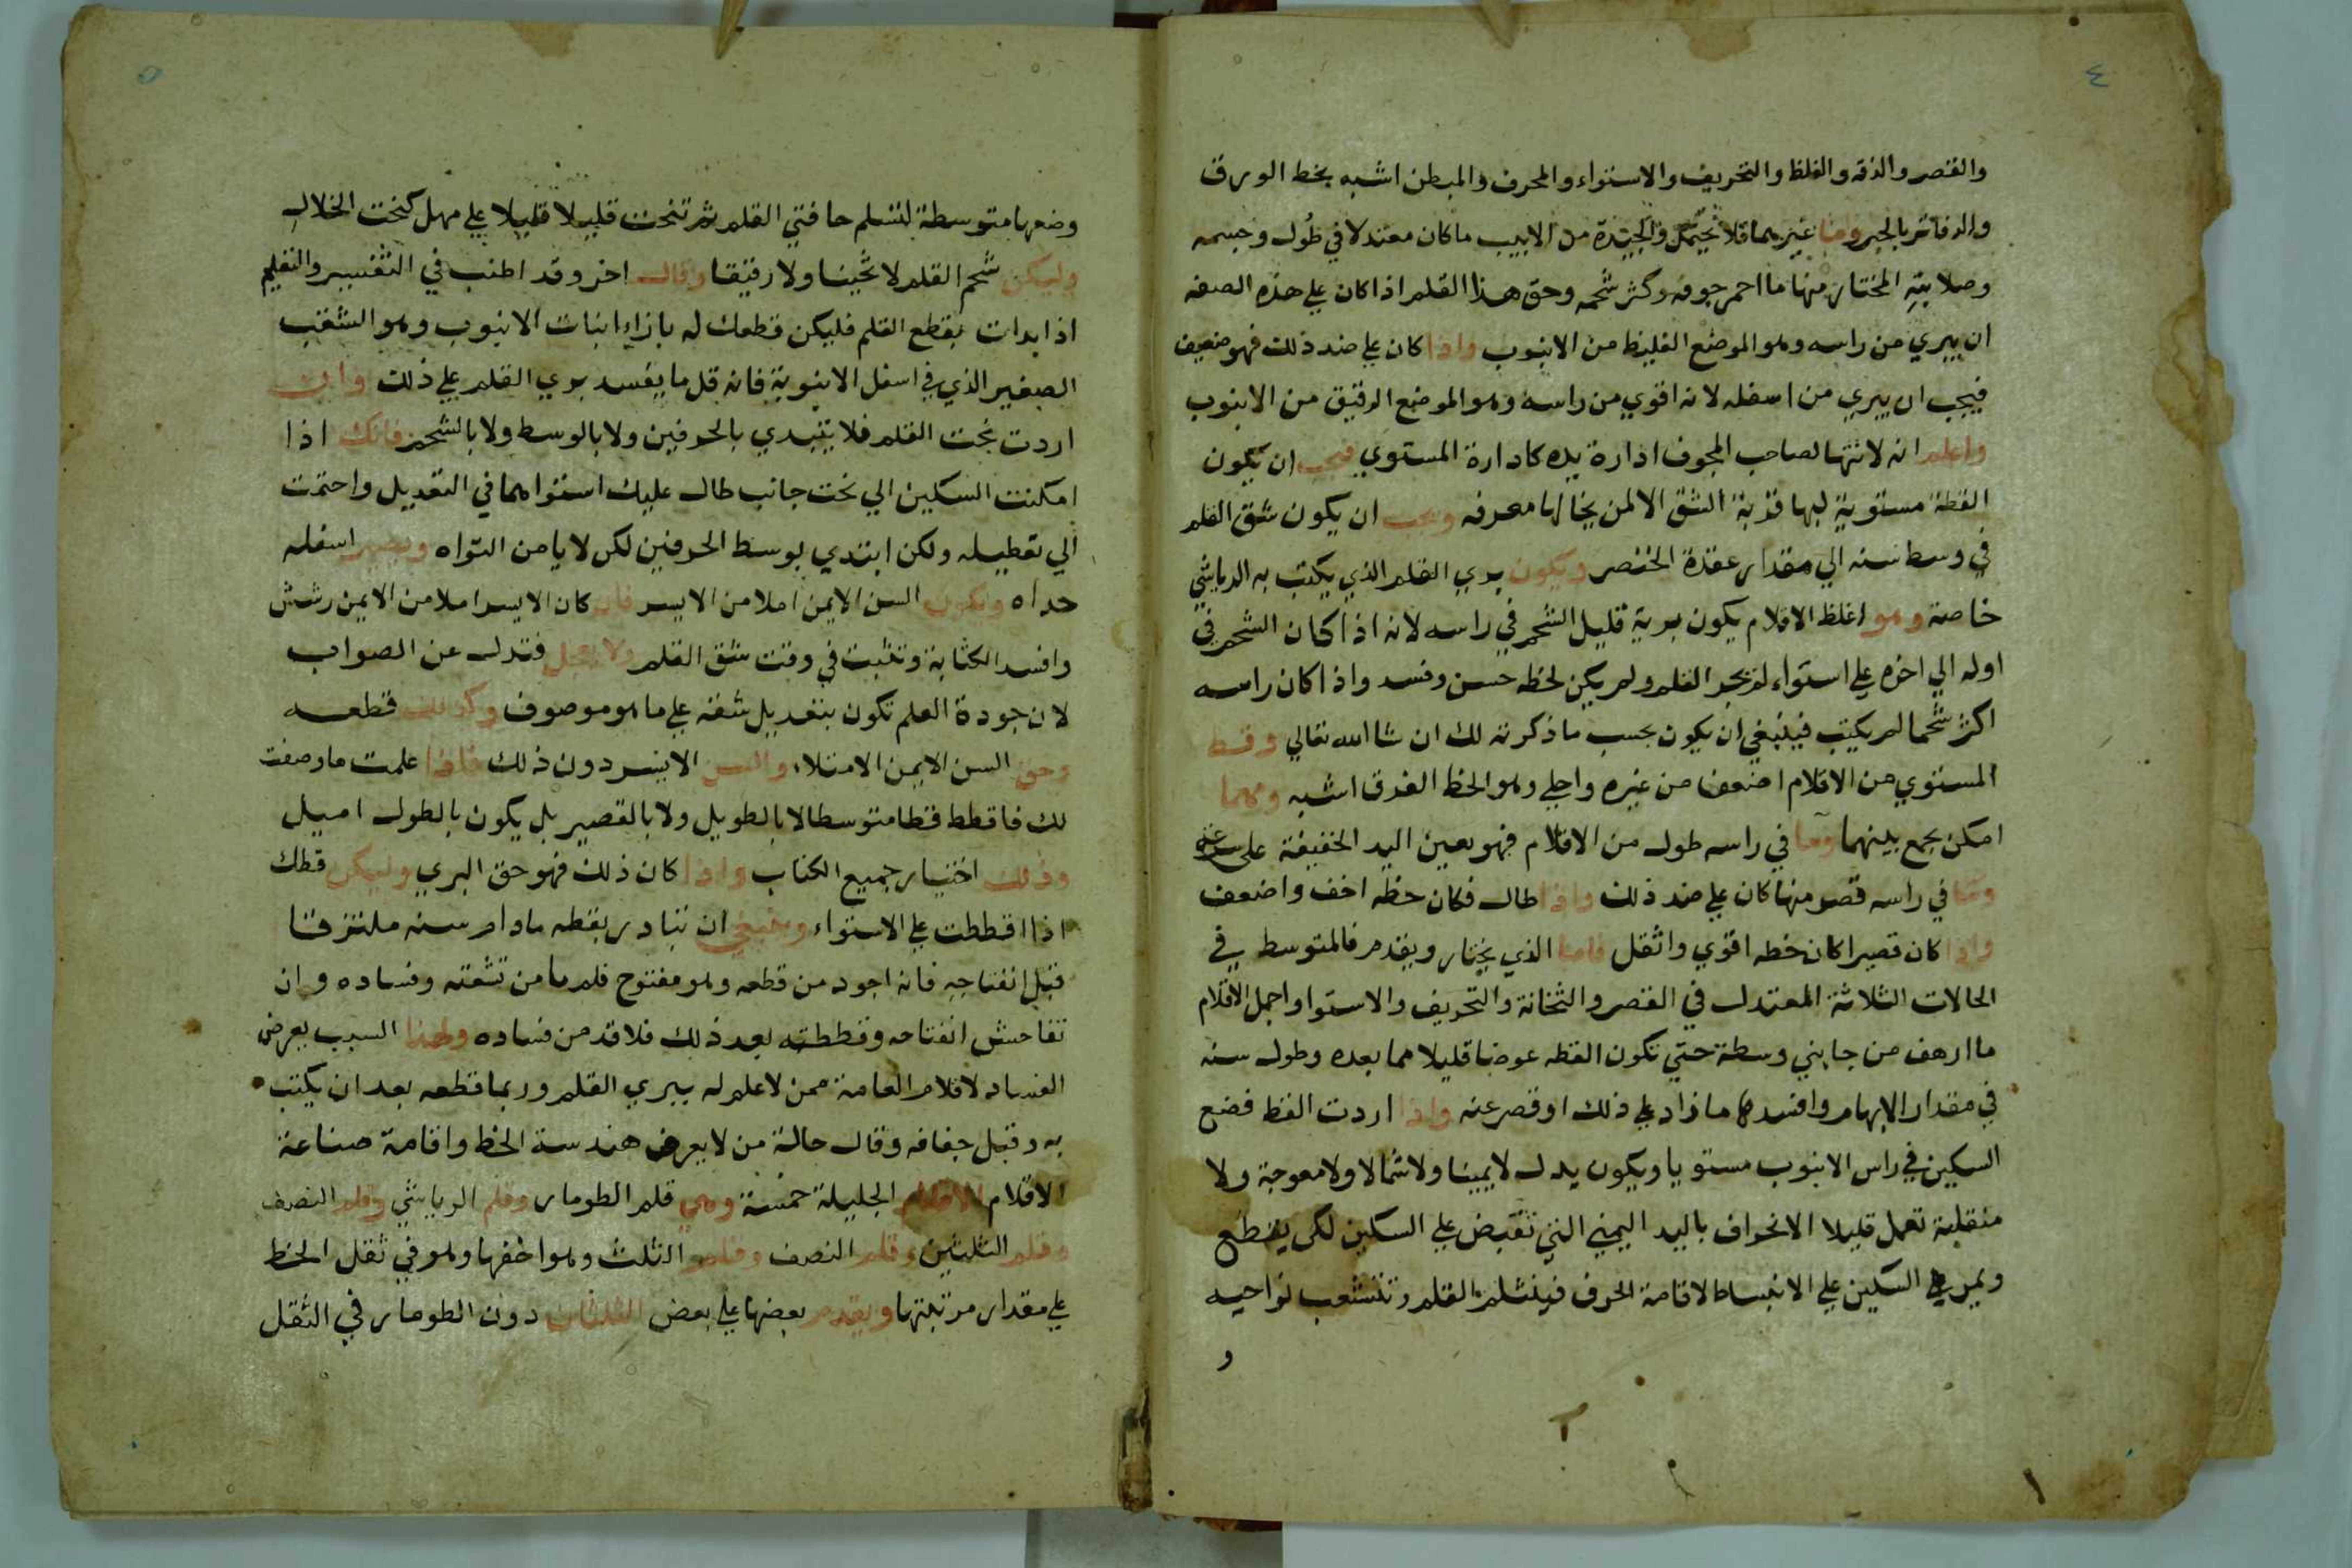 ٤
والقصر والدقه والغلظ والتحريف والاستواء والمحرف والمبطن اشبه بخط الورق
والدفاتر بالحبر واما غيرهما فلا يحتمل والجيدة من الابيب ما كان معتدلا في طول وجسمه
وصلابته المختار منها ما احمر جوفه وكثر شحمه وحق هذا القلم اذا كان علي هذه الصفه
ان يبري من راسه وهو الموضع الغليظ من الانبوب واذا كان علي ضد ذلك فهو ضعيف
فيجب ان يبري من اسفله لانه اقوي من راسه وهو الموضع الرقيق من الانبوب
واعلم انه لا تتها لصاحب المجوف ادارة يده كادارة المستوي فيجب ان يكون
القطة مستوية لها قربة الشق الالمن يخالها معرفه ويجب ان يكون شق القلم
في وسط سنه الي مقدار عقدة الخنصر ويكون بري القلم الذي يكتب به الرياشي
خاصة وهو اغلظ الاقلام يكون برية قليل الشحم في راسه لانه اذا كان الشحم في
اوله الي اخره علي استواء لم يجر القلم ولم يكن لخطه حسن وفسد واذا كان راسه
اكثر شحما لم يكتب فينبغي ان يكون بحسب ما ذكرته لك ان شا الله تعالي وقط
المستوي من الاقلام اضعف من غيره واجلي وهو الخط الغرق اشبه ومهما
امكن يجمع بينهما وما في راسه طول من الاقلام فهو يعين اليد الخفيفة على سرعته
وما في راسه قصر منها كان علي ضد ذلك واذا طال فكان خطه اخف واضعف
واذا كان قصيرا كان خطه اقوي واثقل فاما الذي يختار ويقدم فالمتوسط في
الحالات الثلاثة المعتدل في القصر والثخانة والتحريف والاستوا واجمل الاقلام
ما ارهف من جابني وسطة حتي تكون القطه عرضا قليلا مما بعده وطول سنه
في مقدار الابهام وافسدها ما زاد علي ذلك او قصر عنه واذا اردت القط فضع
السكين في راس الانبوب مستويا ويكون يدك لا يمينا ولا شمالا ولا معوجة ولا
منقلبة تعمل قليلا الانحراف باليد اليمني التي تقبض علي السكين لكي يقطع
ويمر علي السكين علي الانبساط لاقامة الحرف فينثلم القلم وتتشعب نواحيه
و
٥
وضعها متوسطة لتسلم حافتي القلم ثم تنحت قليلا قليلا علي مهل كنحت الخلال
وليكن شحم القلم لا ثخينا ولا رقيقا وقال اخر وقد اطنب في التفسير والتعليم
اذا بدات بقطع القلم فليكن قطعك له بازاء انبات الانبوب وهو الشقب
الصغير الذي في اسفل الانبوبة فانه قل ما يفسد بري القلم علي ذلك وان
اردت نحت القلم فلا يتبدي بالحرفين ولا بالوسط ولا بالشحم فانك اذا
امكنت السكين الي نحت جانب طال عليك استواهما في التعديل واحتمت
الي تعطيله ولكن ابتدي بوسط الحرفين لكن لا يامن التواه ويصير اسفله
حداه وتكون السن الايمن املا من الايسر فان كان الايسر املا من الايمن رشش
وافسد الكتابة وتثبت في وقت شق القلم ولا تعجل فتدل عن الصواب
لان جودة القلم تكون بتعديل شقه علي ما هو موصوف وكذلك قطعه
وحق السن الايمن الامتلاء والسن الايسر دون ذلك فاذا علمت ما وصفت
لك فاقطط قطا متوسطا لا بالطويل ولا بالقصير بل يكون بالطول اميل
وذلك اختيار جميع الكتاب واذا كان ذلك فهو حق البري وليكن قطك
اذا اقططت علي الاستواء وينبغي ان تبادر بقطه ما دام سنه ملتزقا
قبل انفتاجه فانه اجود من قطعه وهو مفتوح فلم يامن تشعثه وفساده وان
تفاحش انفتاحه وقططته بعد ذلك فلا قد من فساده ولهذا السبب يعرض
الفساد لاقلام العامة ممن لا علم له يبري القلم وربما قطعه بعد ان يكتب
به وقبل جفافه وقال حالة من لا يعرض هندسة الخط واقامة صناعة
الاقلام الاقلام الجليلة خمسة وهي قلم الطومار وقلم الرياشي وقلم النصف
وقلم الثلثين وقلم النصف وقلم الثلث وهو اخفها وهو في ثقل الخط
علي مقدار مرتبتها ويقدم بعضها علي بعض الثلثان دون الطومار في الثقل